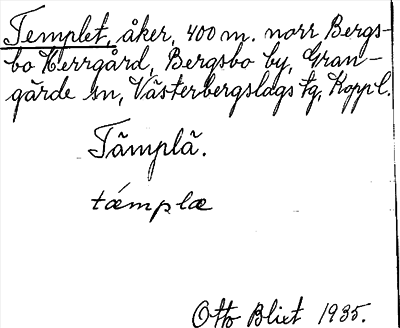 Templet, åker, 400 m. norr Bergs-
bo Herrgård, Bergsbo by, Gran-
gärde sn, Västerbergslags tg, Koppl.
Tämplä.
tǽmplæ
Otto Blixt 1935.